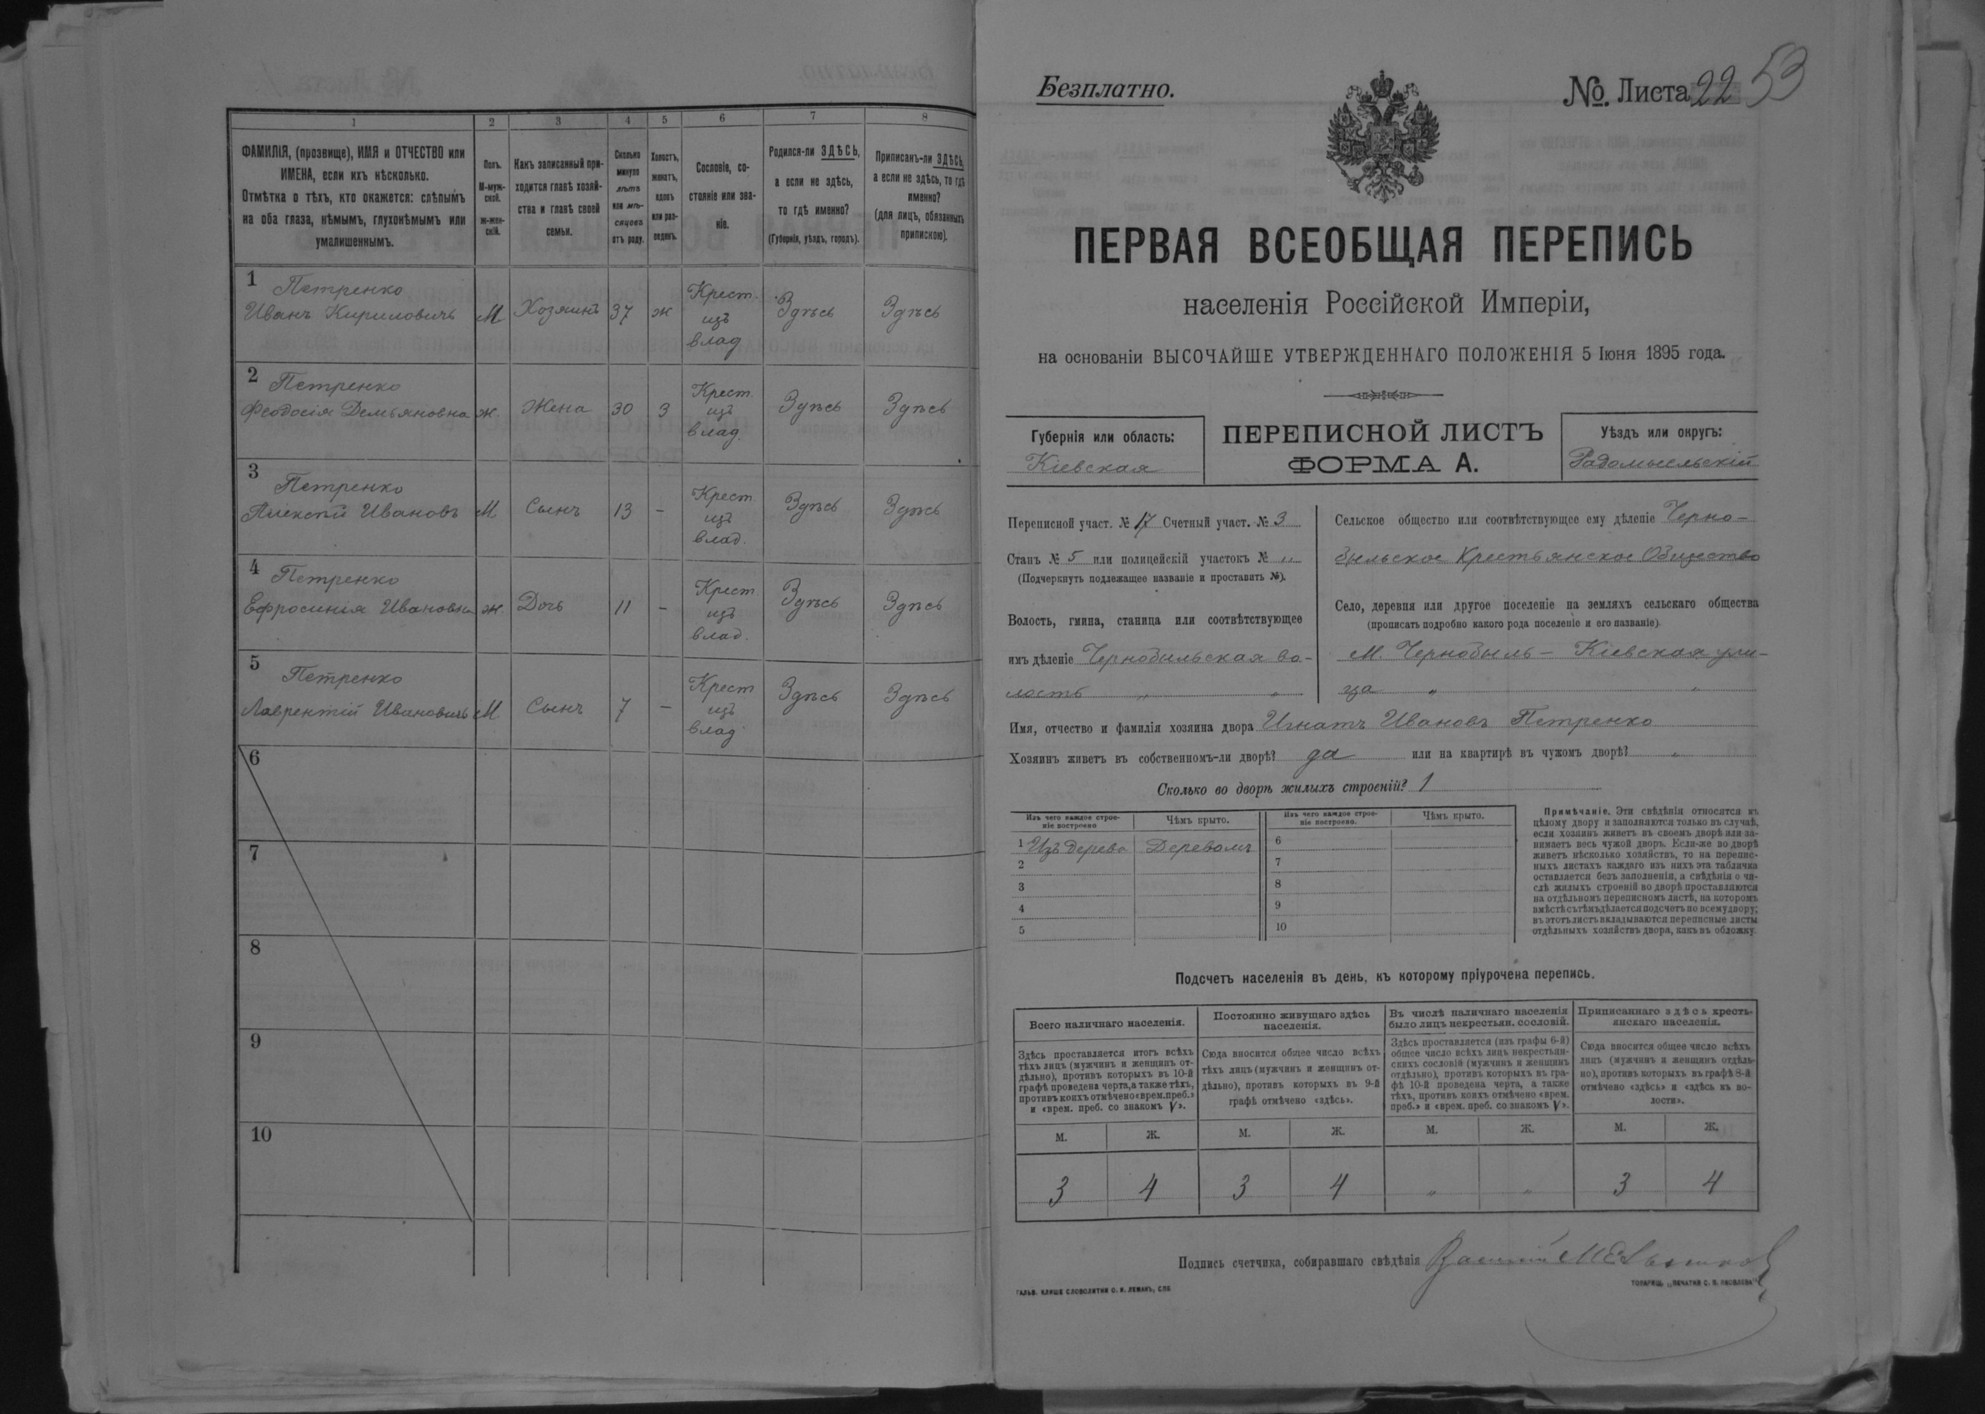 1 2 3 4 5 6 7 8
ФАМИЛІЯ, (прозвище), ИМЯ и ОТЧЕСТВО или
ИМЕНА, если ихъ нѣсколько.
Отмѣтка о тѣхъ, кто окажется: слѣпымъ
на оба глаза, нѣмымъ, глухонѣмымъ или
умалишеннымъ.
Полъ.
М-муж-
ской.
ж-жен-
скій.
Какъ записанный при-
ходится главѣ хозяй-
ства и главѣ своей
семьи.
Сколько
минуло
лѣтъ
или мѣ-
сяцевъ
отъ роду.
Холостъ,
женатъ,
вдовъ
или раз-
веденъ.
Сословіе, со-
стояніе или зва-
ніе.
Родился-ли ЗДѢСЬ,
а если не здѣсь,
то гдѣ именно?
(Губернія, уѣздъ, городъ).
Приписанъ-ли ЗДѢСЬ,
а если не здѣсь, то гдѣ
именно?
(для лицъ, обязанныхъ
припискою).
1 Петренко
Иванъ Кириловичъ М Хозяинъ 37 ж Крест. изъ влад. Здѣсь Здѣсь
2 Петренко
Феодосія Демьяновна ж. Жена 30 З Крест. изъ влад. Здѣсь Здѣсь
3 Петренко
Алексѣй Ивановъ М. Сынъ 13 - Крест. изъ влад. Здѣсь Здѣсь
4 Петренко
Ефросинія Ивановна ж Дочь 11 - Крест. изъ влад. Здѣсь Здѣсь
5 Петренко
Лаврентій Ивановичъ М. Сынъ 7 - Крест изъ влад. Здѣсь Здѣсь
6
7
8
9
10
Безплатно.
№. Листа 22 53
ПЕРВАЯ ВСЕОБЩАЯ ПЕРЕПИСЬ
населенія Россійской Имперіи,
на основаніи ВЫСОЧАЙШЕ УТВЕРЖДЕННАГО ПОЛОЖЕНІЯ 5 Іюня 1895 года.
Губернія или область:
Кіевская
ПЕРЕПИСНОЙ ЛИСТЪ
ФОРМА А.
Уѣздъ или округъ:
Радомысльскій
Переписной участ. № 17 Счетный участ. № 3
Станъ № 5 или полицейскій участокъ № "
(Подчеркнуть подлежащее названіе и проставить №).
Волость, гмина, станица или соотвѣтствующее
имъ дѣленіе Чернобыльская во-
лость " "
Сельское общество или соотвѣтствующее ему дѣленіе Черно-
быльское Крестьянское Общество
Село, деревня или другое поселеніе на земляхъ сельскаго общества
(прописать подробно какого рода поселеніе и его названіе).
М. Чернобыль - Кіевская ули-
ца " "
Имя, отчество и фамилія хозяина двора Игнатъ Ивановъ Петренко
Хозяинъ живетъ въ собственномъ-ли дворѣ? да или на квартирѣ въ чужомъ дворѣ? "
Сколько во дворѣ жилыхъ строеній? 1
Изъ чего каждое строе-
ніе построено
Чѣмъ крыто.
Изъ чего каждое строе-
ніе построено.
Чѣмъ крыто.
1 Изъ дерева Деревомъ 6
2 7
3 8
4 9
5 10
Примѣчаніе. Эти свѣдѣнія относятся къ
цѣлому двору и заполняются только въ случаѣ,
если хозяинъ живетъ въ своемъ дворѣ или за-
нимаетъ весь чужой дворъ. Если-же во дворѣ
живетъ нѣсколько хозяйствъ, то на перепис-
ныхъ листахъ каждаго изъ нихъ эта табличка
оставляется безъ заполненія, а свѣдѣнія о чи-
слѣ жилыхъ строеній во дворѣ проставляются
на отдѣльномъ переписномъ листѣ, на которомъ
вмѣстѣ съ тѣмъ дѣлается подсчетъ по всему двору;
въ этотъ листъ вкладываются переписные листы
отдѣльныхъ хозяйствъ двора, какъ въ обложку.
Подсчетъ населенія въ день, къ которому пріурочена перепись.
Всего наличнаго населенія.
Здѣсь проставляется итогъ всѣхъ
тѣхъ лицъ (мужчинъ и женщинъ от-
дѣльно), противъ которыхъ въ 10-й
графѣ проведена черта, а также тѣхъ,
противъ коихъ отмѣчено «врем. преб.»
и «врем. преб. со знакомъ V».
Постоянно живущаго здѣсь
населенія.
Сюда вносится общее число всѣхъ
тѣхъ лицъ (мужчинъ и женщинъ от-
дѣльно), противъ которыхъ въ 9-й
графѣ отмѣчено «здѣсь».
Въ числѣ наличнаго населенія
было лицъ некрестьян. сословій.
Здѣсь проставляется (изъ графы 6-й)
общее число всѣхъ лицъ некрестьян-
скихъ сословій (мужчинъ и женщинъ
отдѣльно), противъ которыхъ въ гра-
фѣ 10-й проведена черта, а также
тѣхъ, противъ коихъ отмѣчено «врем.
преб.» и «врем. преб. со знакомъ V».
Приписаннаго здѣсь кресть-
янскаго населенія.
Сюда вносится общее число всѣхъ
лицъ (мужчинъ и женщинъ отдѣль-
но), противъ которыхъ въ графѣ 8-й
отмѣчено «здѣсь» и «здѣсь въ во-
лости».
М. Ж. М. Ж. М. Ж. М. Ж.
3 4 3 4 " " 3 4
Подпись счетчика, собиравшаго свѣдѣнія
ГАЛЬВ. КЛИШЕ СЛОВОЛИТНИ О. И. ЛЕМАНЪ, СПБ.
ТОВАРИЩ. „ПЕЧАТНИ С. П. ЯКОВЛЕВА“